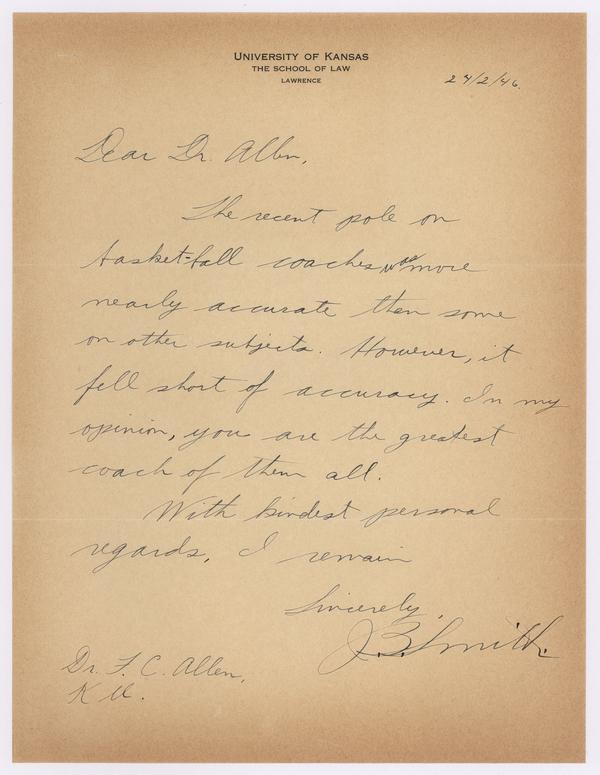 UNIVERSITY OF KANSAS
THE SCHOOL OF LAW
LAWRENCE
24/2/46.
Dear Dr. Allen,
The recent pole on
basket-ball coaches was more
nearly accurate then some
on other subjects. However, it
fell short of accuracy. In my
opinion, you are the greatest
coach of them all.
With kindest personal
regards, I remain
Sincerely,
J. B. Smith.
Dr. F. C. Allen,
K U.